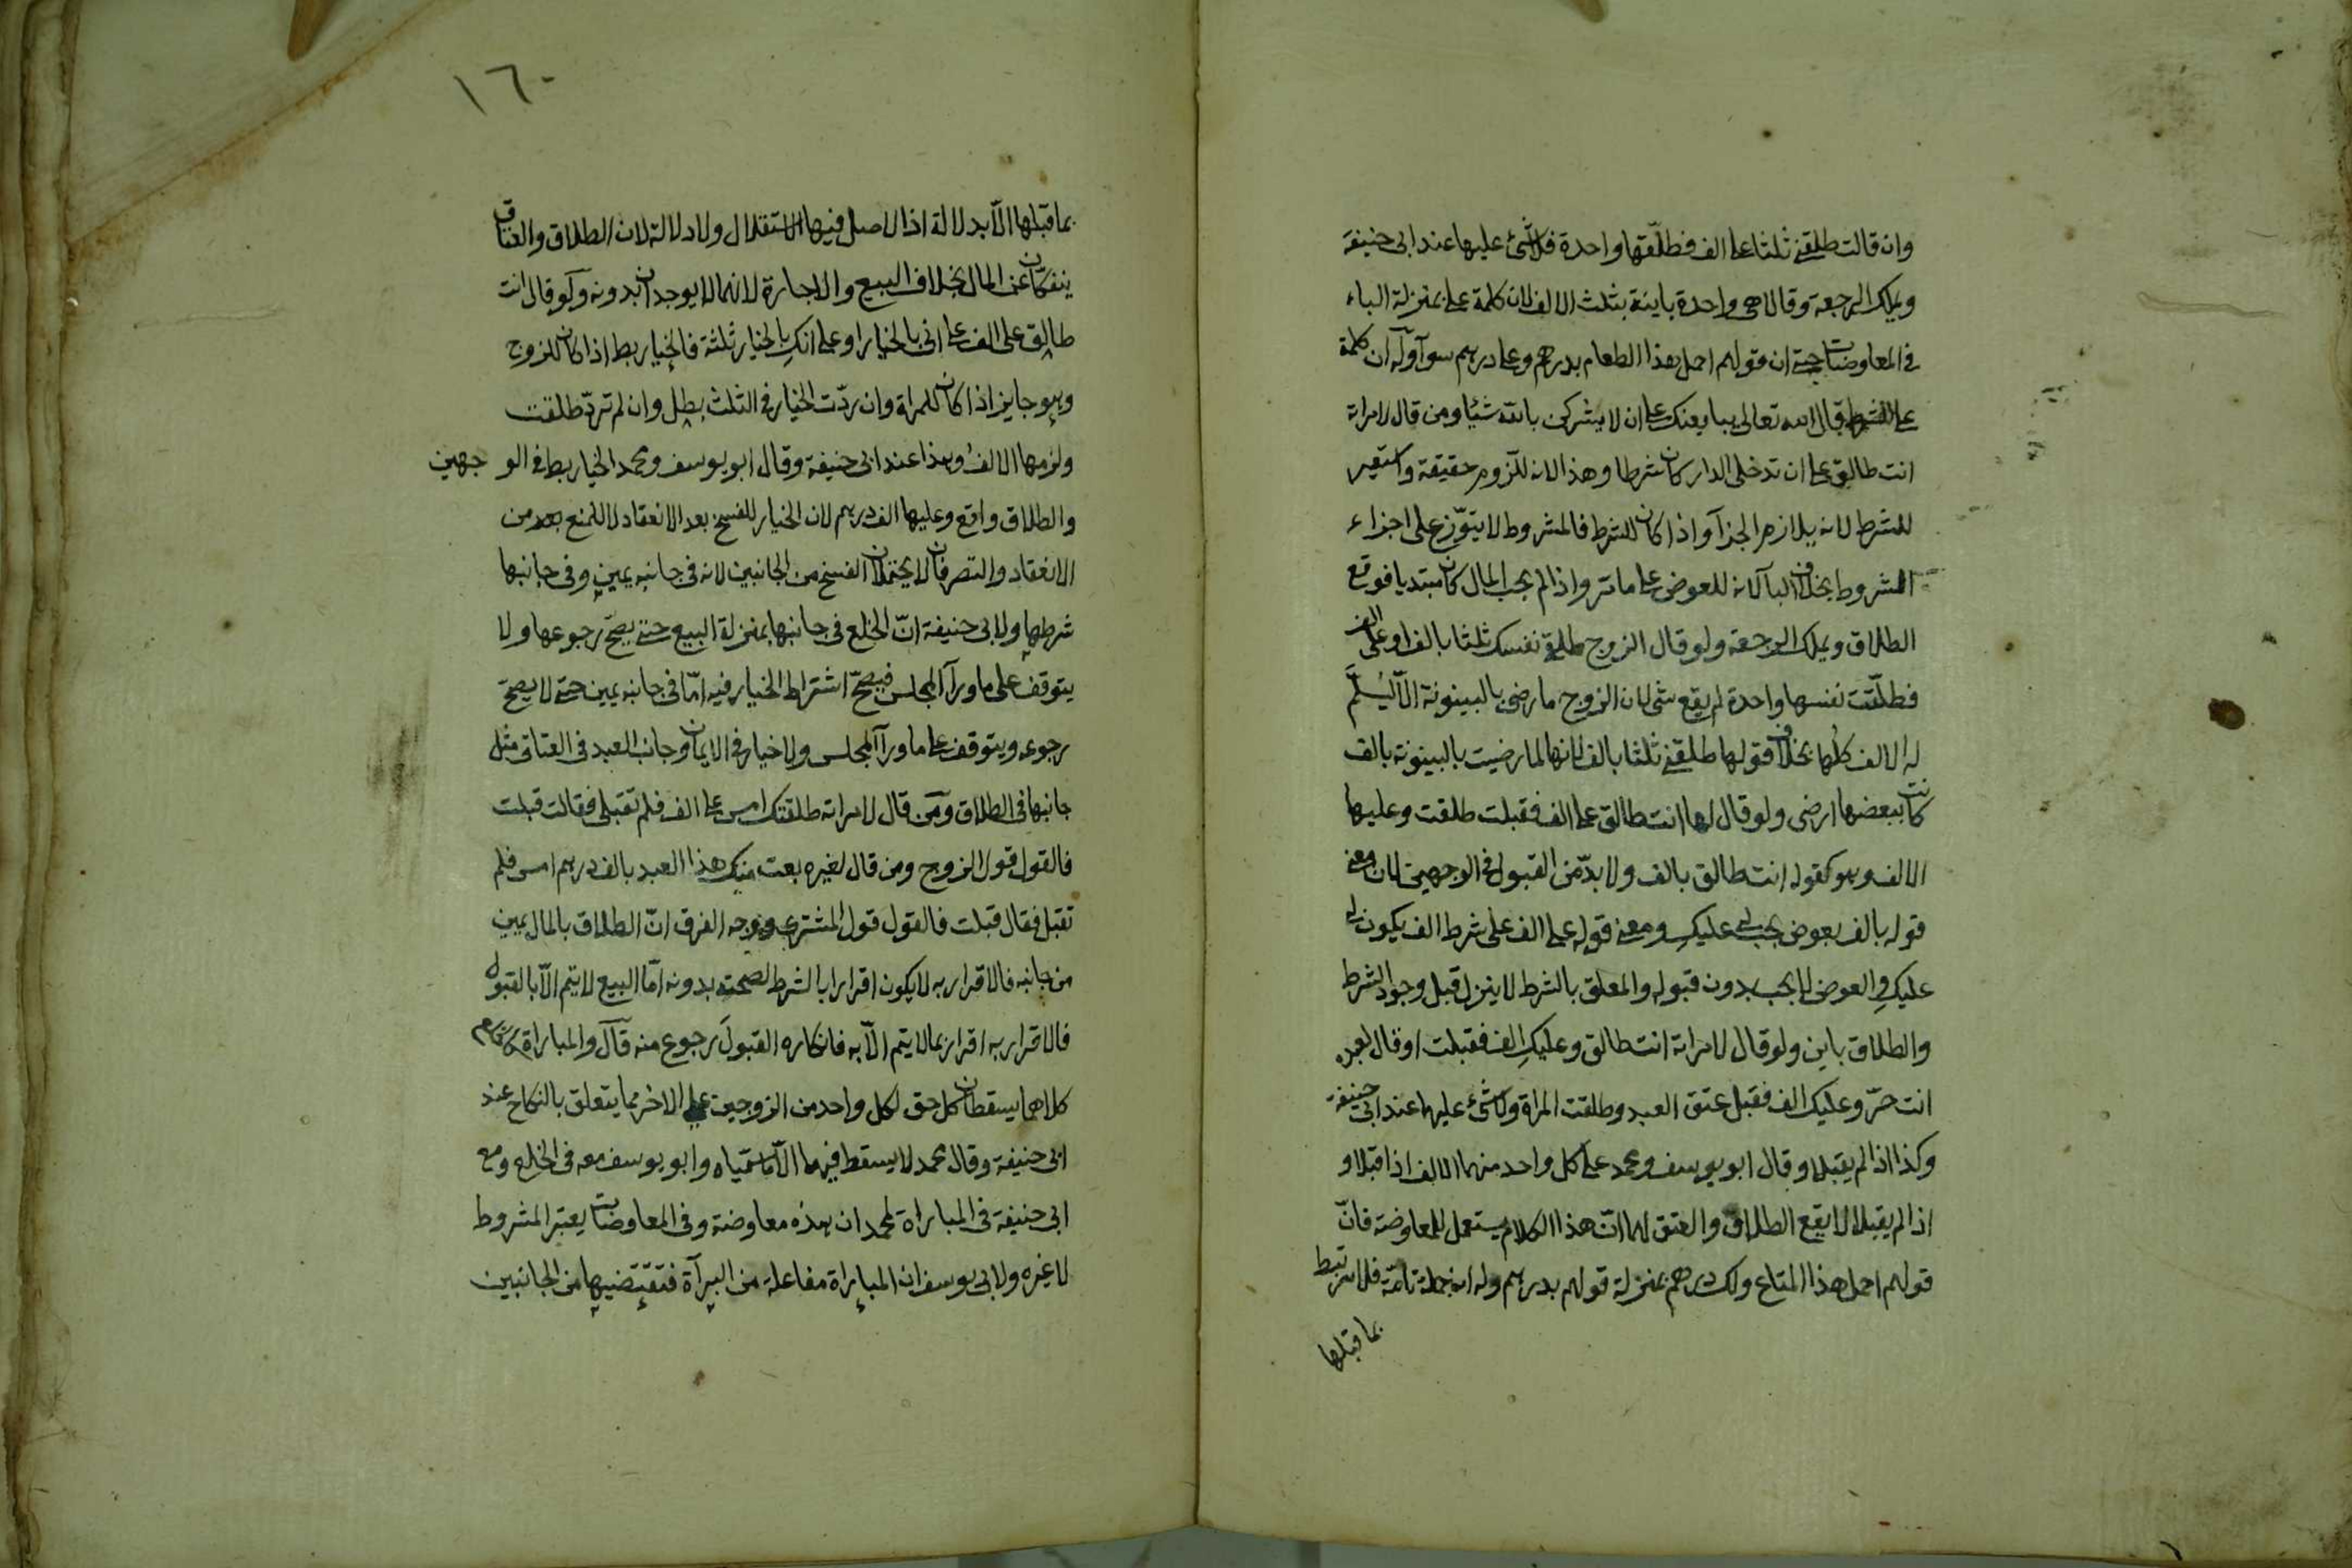 وان قالت طلقنى ثلثا على الف فطلّقها واحدة فلا شئ عليها عند ابى حنيفة
ويملك الرجعة وقالا هى واحدة باينة بثلث الالف لان كلمة على بمنزلة الباء
فى المعاوضات حتى ان قولهم احمل هذا الطعام بدرهم وعلى درهم سوآ وله ان كلمة
على للشرط قال الله تعالى يبايعنك على ان لا يشركن بالله شيئا ومن قال لامراته
انت طالق على ان تدخلى الدار كان شرطا وهذا لانه للّزوم حقيقة واستعير
للشرط لانه يلازم الجزآ واذا كان للشرط فالمشروط لا يتوزّع على اجزاء
الشروط بخلاف البآ لانه للعوض على ما مر واذا لم يجب المال كان مبتديا فوقع
الطلاق ويملك الرجعة ولو قال الزوج طلقى نفسك ثلثا بالف او على الف
فطلّقت نفسها واحدة لم يقع شئ لان الزوج ما رضى بالبينونة الّا ليُسلَّم
له الالف كلها بخلاف قولها طلقنى ثلثا بالف لانها لما رضيت بالبينونة بالف
كانت ببعضها ارضى ولو قال لها انت طالق على الف فقبلت طلقت وعليها
الالف وهو كقوله انت طالق بالف ولا بدّ من القبول فى الوجهين لان معنى
قوله بالف بعوض يجب لى عليكِ ومعنى قوله على الف على شرط الف يكون لى
عليكِ والعوض لا يجب بدون قبوله والمعلق بالشرط لا ينزل قبل وجود الشرط
والطلاق باين ولو قال لامراته انت طالق وعليكِ الف فقبلت او قال لعبده
انت حرّ وعليك الف فقبل عتق العبد وطلقت المراة ولا شئ عليهما عند ابى حنيفة
وكذا اذا لم يقبلا وقال ابو يوسف ومحمد على كل واحد منهما الالف اذا قبلا و
اذا لم يقبلا لا يقع الطلاق والعتق لهما انّ هذا الكلام يستعمل للمعاوضة فانّ
قولهم احمل هذا المتاع ولك درهم بمنزلة قولهم بدرهم وله انه جملة تامّة فلا ترتبط
بما قبلها
١٦٠
بما قبلها الّا بدلالة اذا الاصل فيها الاستقلال ولا دلالة لان الطلاق والعتاق
ينفكّان عن المال بخلاف البيع والاجارة لانهما لا يوجدان بدونه ولو قال انت
طالق على الف على انى بالخيار او على انكِ بالخيار ثلثة فالخيار بط اذا كان للزوج
وهو جايز اذا كان للمراة وان ردّت الخيار فى الثلث بطل وان لم تردّ طلقت
ولزمها الالف وهذا عند ابى حنيفة وقال ابو يوسف ومحمد الخيار بط فى الو جهين
والطلاق واقع وعليها الف درهم لان الخيار للفسخ بعد الانعقاد لا للمنع من
الانعقاد والتصرفان لا يحتملان الفسخ من الجانبين لانه فى جانبه يمين وفى جانبها
شرطها ولابى حنيفة انّ الخلع فى جانبها بمنزلة البيع حتى يصحّ رجوعها ولا
يتوقف على ما ورآ المجلس فيصحّ اشتراط الخيار فيه امّا فى جانبه يمين حتى لا يصحّ
رجوعه ويتوقف على ما ورآ المجلس ولا خيار فى الايمان وجانب العبد فى العتاق مثل
جانبها فى الطلاق ومن قال لامراته طلقتك امس على الف فلم تقبلى فقالت قبلت
فالقول قول الزوج ومن قال لغيره بعت منك هذا العبد بالف درهم امس فلم
تقبل فقال قبلت فالقول قول المشترى ووجه الفرق انّ الطلاق بالمال يمين
من جانبه فالاقرار به لا يكون اقرارا بالشرط لصحته بدونه امّا البيع لا يتم الّا بالقبول
فالاقرار به اقرار بما لا يتم الّا به فانكاره القبولَ رجوع منه قال والمباراة كالخلع
كلاهما يسقطان كل حق لكل واحد من الزوجين على الاخر مما يتعلق بالنكاح عند
ابى حنيفة وقال محمد لا يسقط فيهما الّا ما سمّياه وابو يوسف معه فى الخلع ومع
ابى حنيفة فى المباراة لمحمد ان هذه معاوضة وفى المعاوضات يعتبر المشروط
لا غيره ولابى يوسف ان المباراة مفاعلة من البرآة فتقتضيها من الجانبين